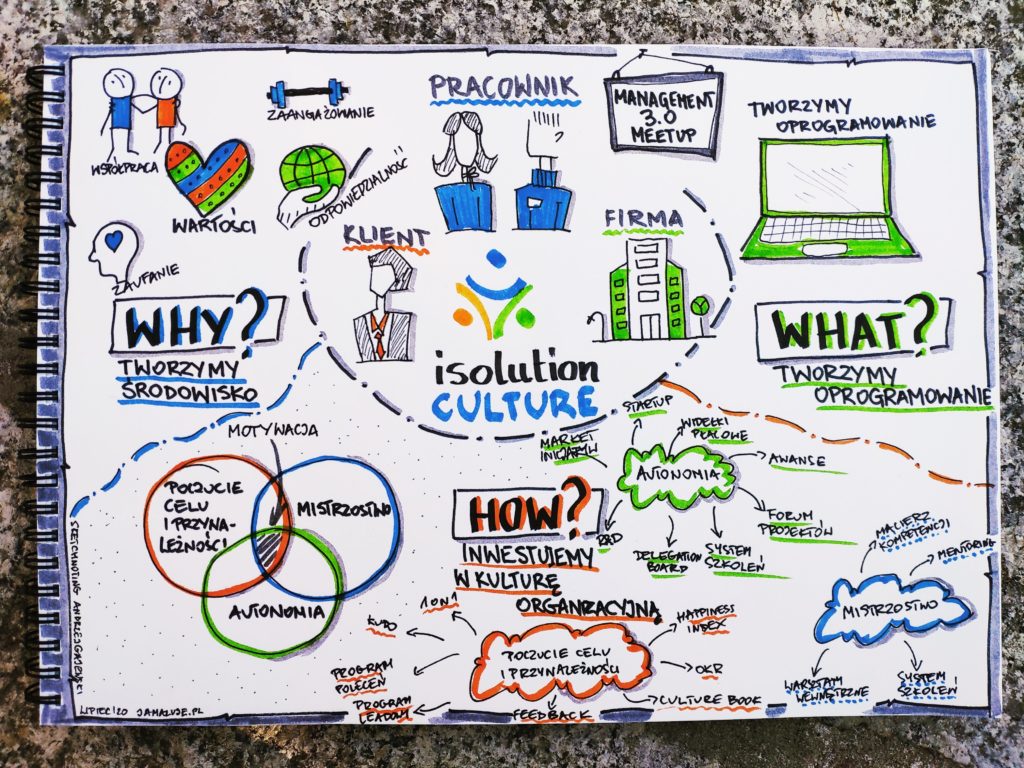 WSPÓŁPRACA
ZAANGAŻOWANIE
WARTOŚCI
ODPOWIEDZIALNOŚĆ
ZAUFANIE
PRACOWNIK
KLIENT
FIRMA
isolution
CULTURE
MANAGEMENT
3.0
MEETUP
TWORZYMY
OPROGRAMOWANIE
WHY?
TWORZYMY
ŚRODOWISKO
WHAT?
TWORZYMY
OPROGRAMOWANIE
MOTYWACJA
POCZUCIE
CELU
I PRZYNA-
LEŻNOŚCI
MISTRZOSTWO
AUTONOMIA
HOW?
INWESTUJEMY
W KULTURĘ
ORGANIZACYJNĄ
AUTONOMIA
MARKET
INICJATYW
STARTUP
WIDEŁKI
PŁACOWE
AWANSE
FORUM
PROJEKTÓW
SYSTEM
SZKOLEŃ
DELEGATION
BOARD
R&D
POCZUCIE CELU
I PRZYNALEŻNOŚCI
1 ON 1
KUDO
PROGRAM
POLECEŃ
PROGRAM
FEEDBACK
CULTURE BOOK
OKR
HAPPINESS
INDEX
MISTRZOSTWO
MACIERZ
KOMPETENCJI
MENTORING
WEWNĘTRZNE
SYSTEM
SZKOLEŃ
SKETCHNOTING ANDRZEJ GAJEWSKI
LIPIEC '20 JAMALUJE.PL